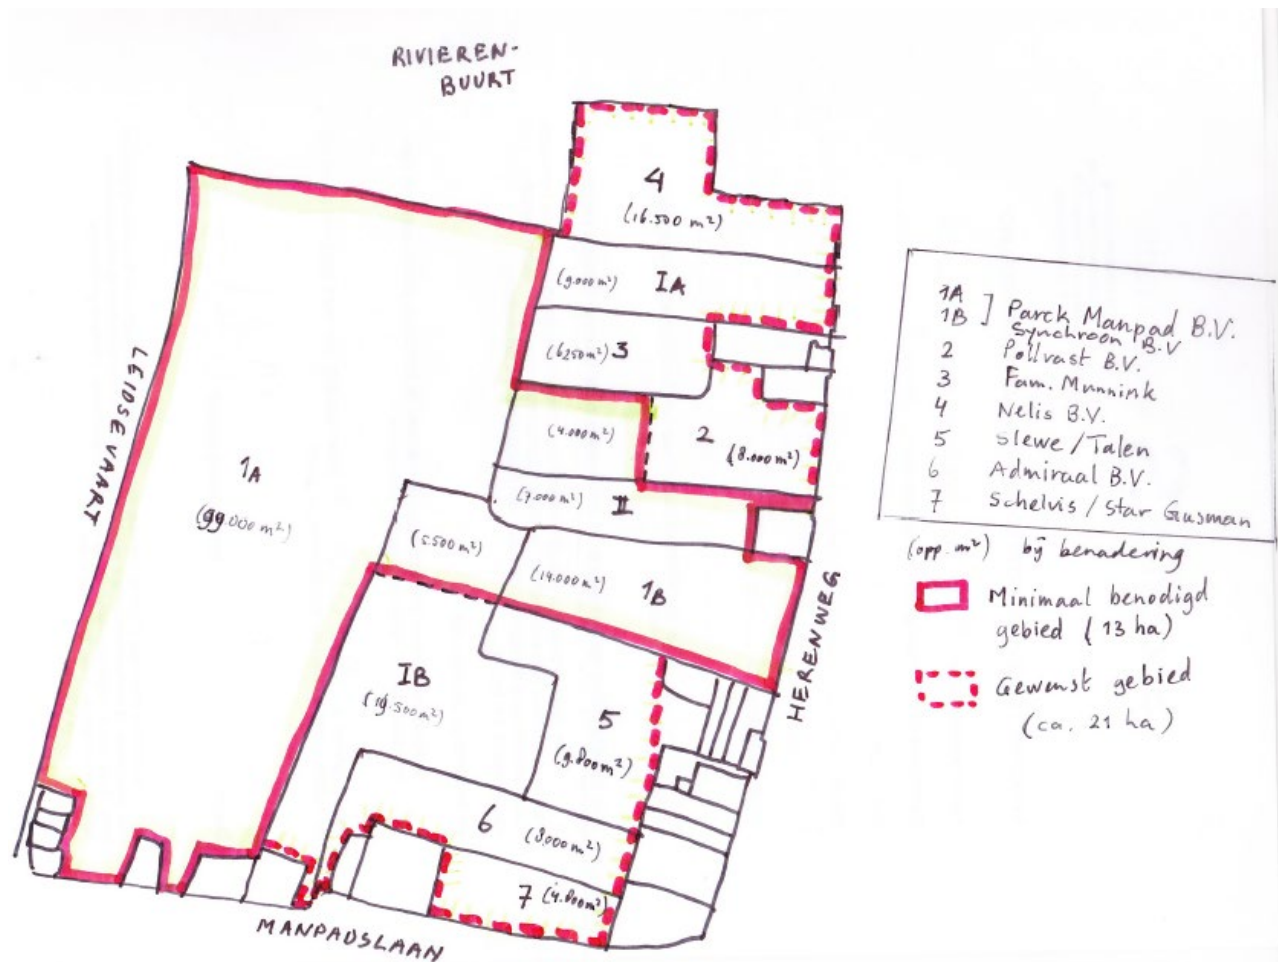 RIVIEREN-
BUURT
4
(16.500 m²)
(9.000 m²) IA
(6250 m²) 3
(4.000 m²)
2 (8.000 m²)
(7.000 m²) II
1A
(99.000 m²)
(5.500 m²)
(14.000 m²) 1B
IB
(19.500 m²)
5
(9.800 m²)
6 (8.000 m²)
7 (4.800 m²)
LEIDSEVAART
HERENWEG
MANPADSLAAN
1A
1B ] Parck Manpad B.V.
Synchroon B.V
2 Pollvast B.V.
3 Fam. Munnink
4 Nelis B.V.
5 Slewe/Talen
6 Admiraal B.V.
7 Schelvis / Star Gusman
(opp. m²) bij benadering
Minimaal benodigd
gebied (13 ha)
Gewenst gebied
(ca. 21 ha)